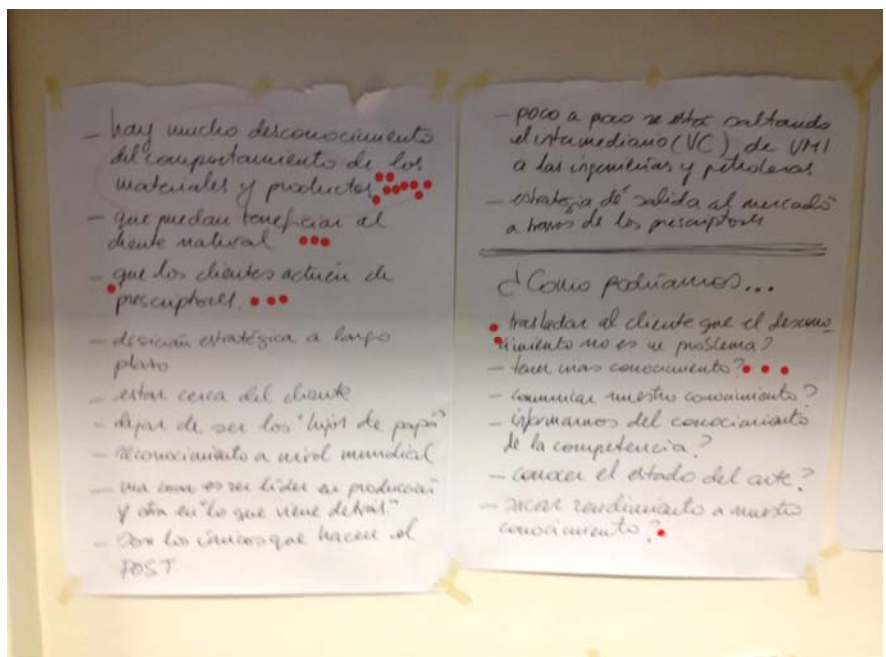 – hay mucho desconocimiento
del comportamiento de los
materiales y productos
– que puedan beneficiar al
cliente natural
– que los clientes actúen de
prescriptores.
– decisión estratégica a largo
plazo
– estar cerca del cliente
– dejar de ser los "hijos de papá"
– reconocimiento a nivel mundial
– una cosa es ser líder en producción
y otra en "lo que viene detrás"
– son los únicos que hacen el
POST
– poco a poco se está saltando
el intermediario (VC), de VMI
a las ingenierías y petroleras
– estrategia de salida al mercado
a través de los prescriptores
¿Como podríamos...
trasladar al cliente que el descono_
cimiento no es un problema?
– tener mas conocimiento?
– comunicar nuestro conocimiento?
– informarnos del conocimiento
de la competencia?
– conocer el estado del arte?
– sacar rendimiento a nuestro
conocimiento?